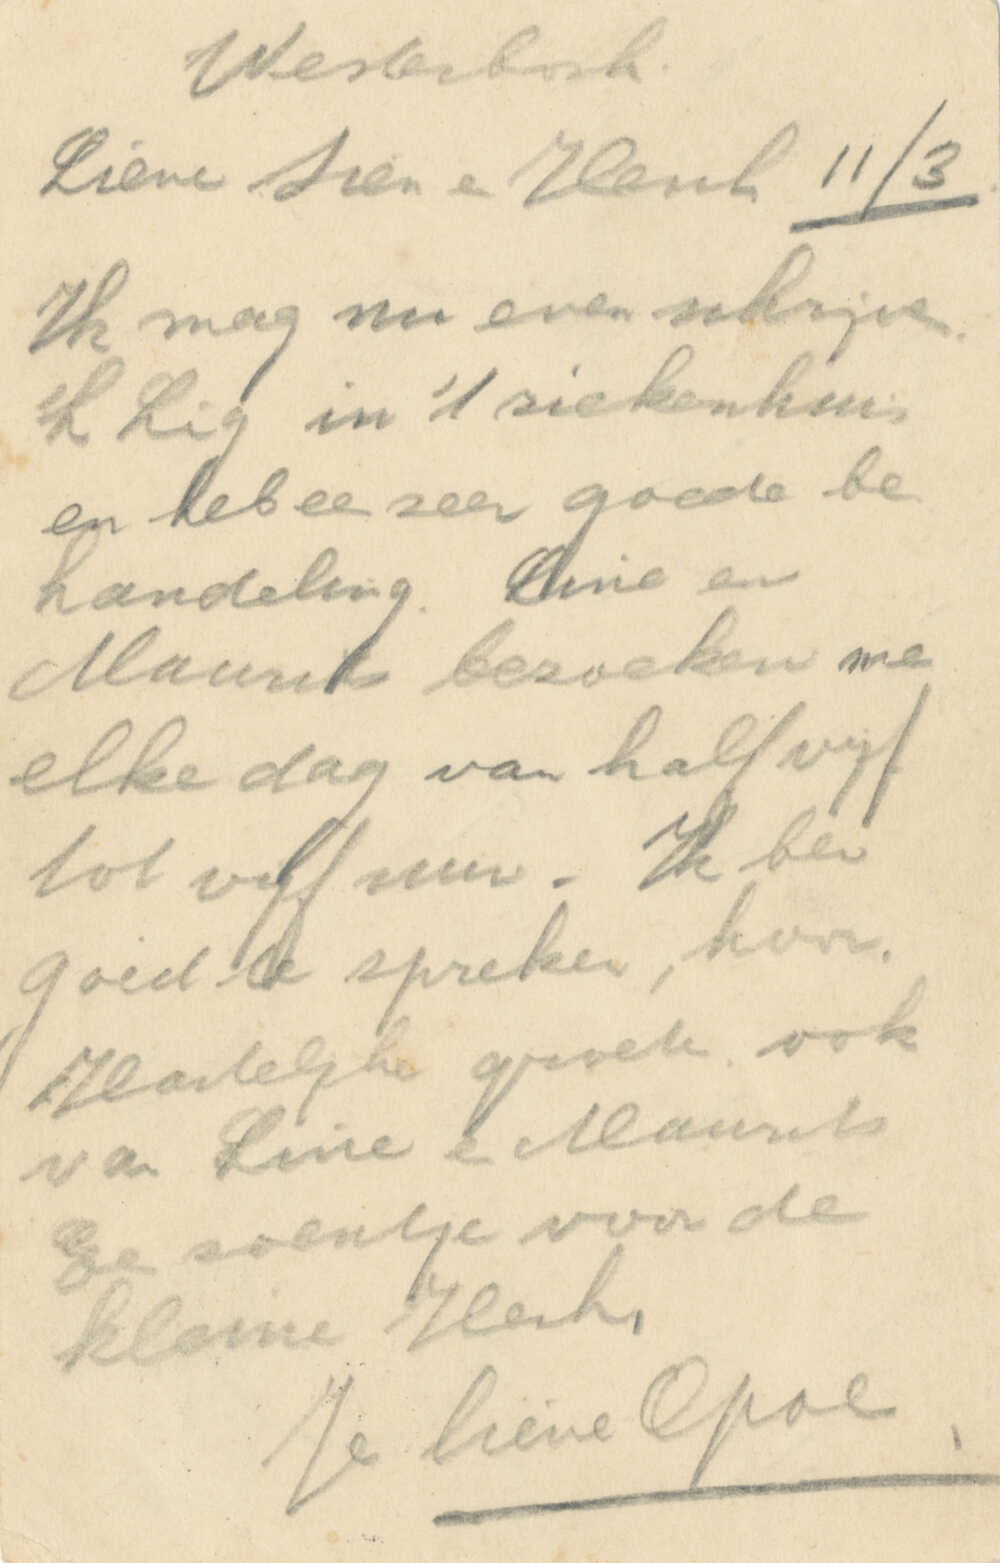 Westerbork.
Lieve Sien e Hersch 11/3
Ik mag nu even schrijven.
'k Lig in 't siekenhuis
en heb ee seer goede be
handeling. Line en
Maurits bezoeken me
elke dag van half vijf
tot vijf uur. Ik ben
goed te spreken, hoor.
Hartelijke groete ook
van Line e Maurits
Ee soentje voor de
kleine Hersch,
Je lieve Opoe